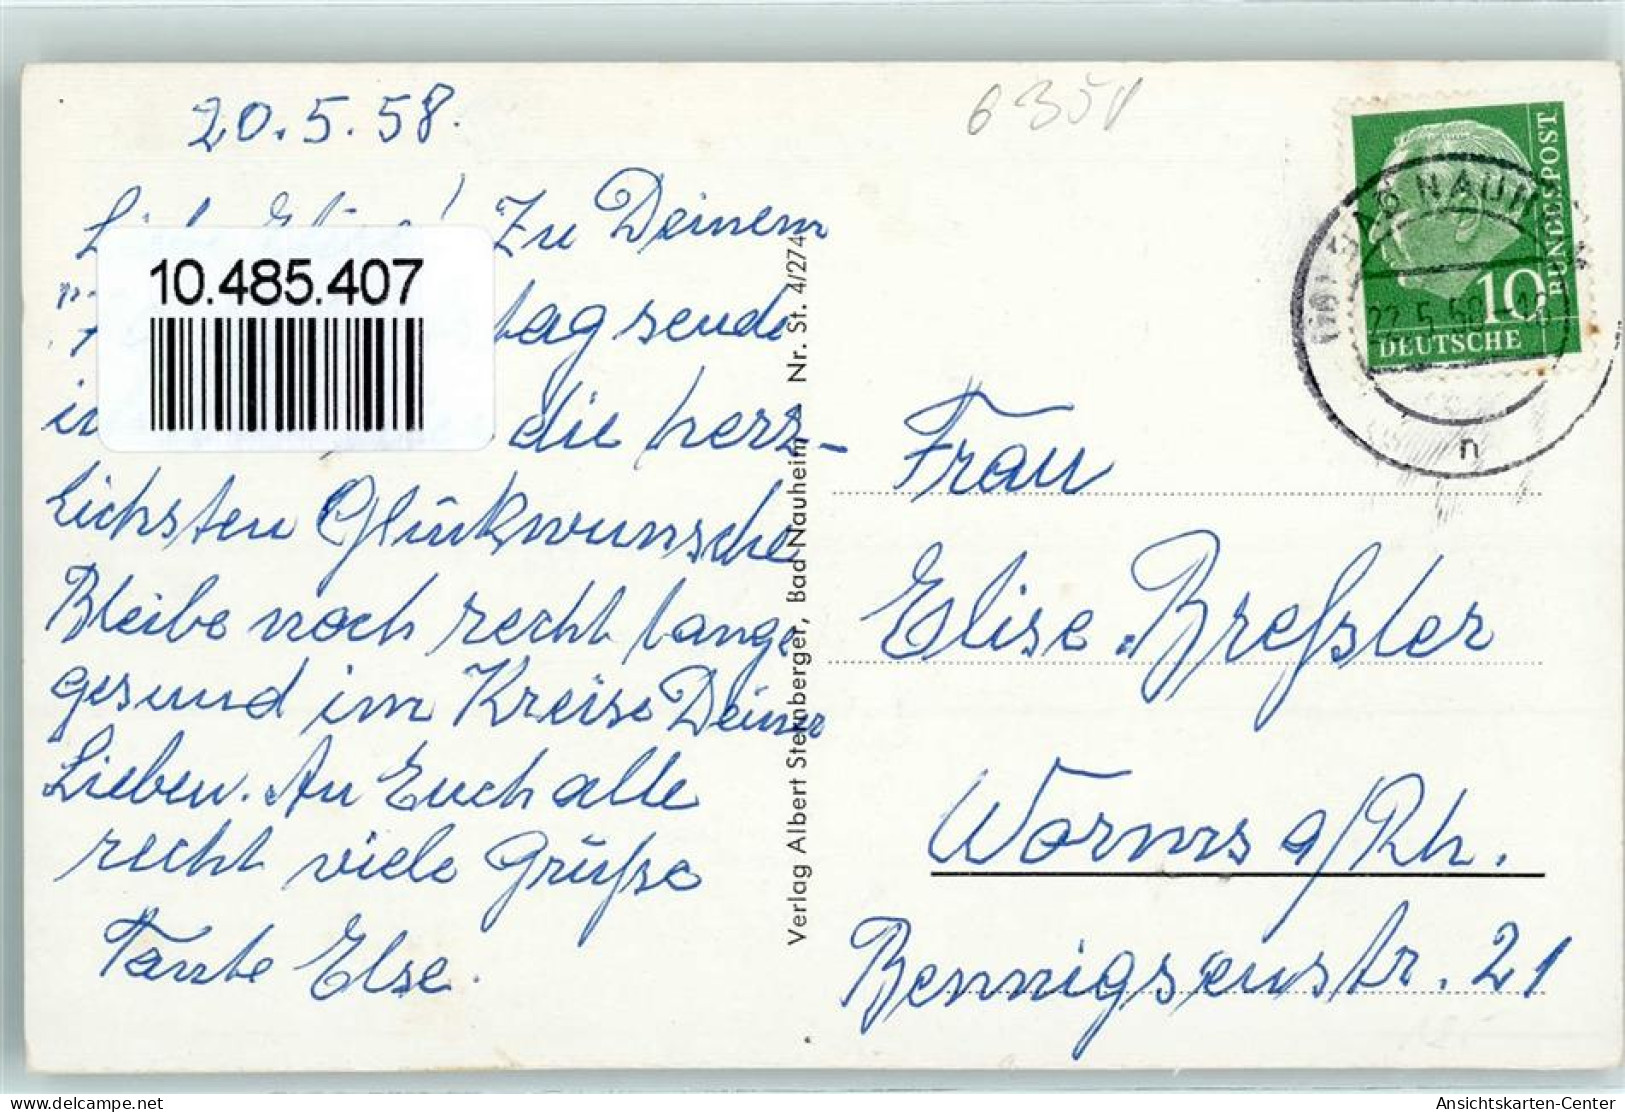 20.5.58.
6351
Zu Deinem
10.485.407
tag sende
die herz-
lichsten Glückwunsche
Bleibe noch recht lange
gesund im Kreise Deiner
Lieben. An Euch alle
recht viele Grüße
Tante Else.
Verlag Albert Sternberger, Bad Nauheim - Nr. St. 4/274
BAD NAUHEIM
22.5.58-18
n
10
DEUTSCHE
BUNDESPOST
Frau
Elise Breßler
Worms a/Rh.
Bennigsenstr. 21
delcampe.net
Ansichtskarten-Center